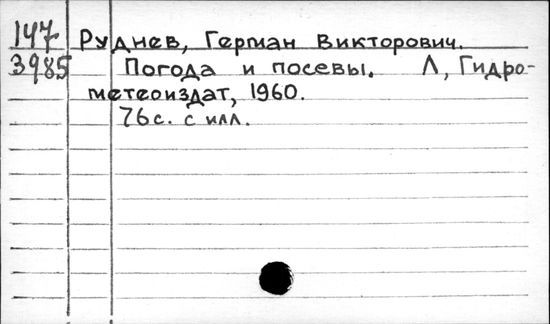 147 Руднев, Герман Викторович.
3985 Погода и посевы. Л, Гидро-
метеоиздат, 1960.
76 с. с илл.